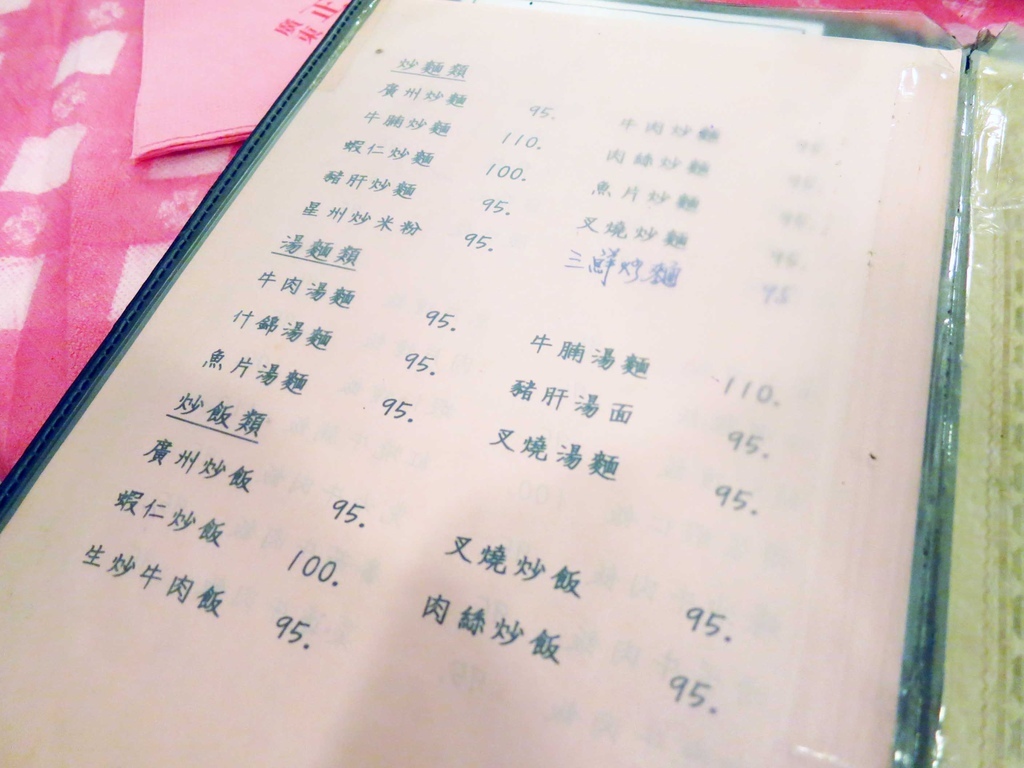 廣東
正
炒麵類
廣州炒麵 95.
牛腩炒麵 110.
蝦仁炒麵 100.
豬肝炒麵 95.
星州炒米粉 95.
牛肉炒麵 95.
肉絲炒麵 95.
魚片炒麵 95.
叉燒炒麵 95.
三鮮炒麵 95
湯麵類
牛肉湯麵 95.
什錦湯麵 95.
魚片湯麵 95.
牛腩湯麵 110.
豬肝湯面 95.
叉燒湯麵 95.
炒飯類
廣州炒飯 95.
蝦仁炒飯 100.
生炒牛肉飯 95.
叉燒炒飯 95.
肉絲炒飯 95.